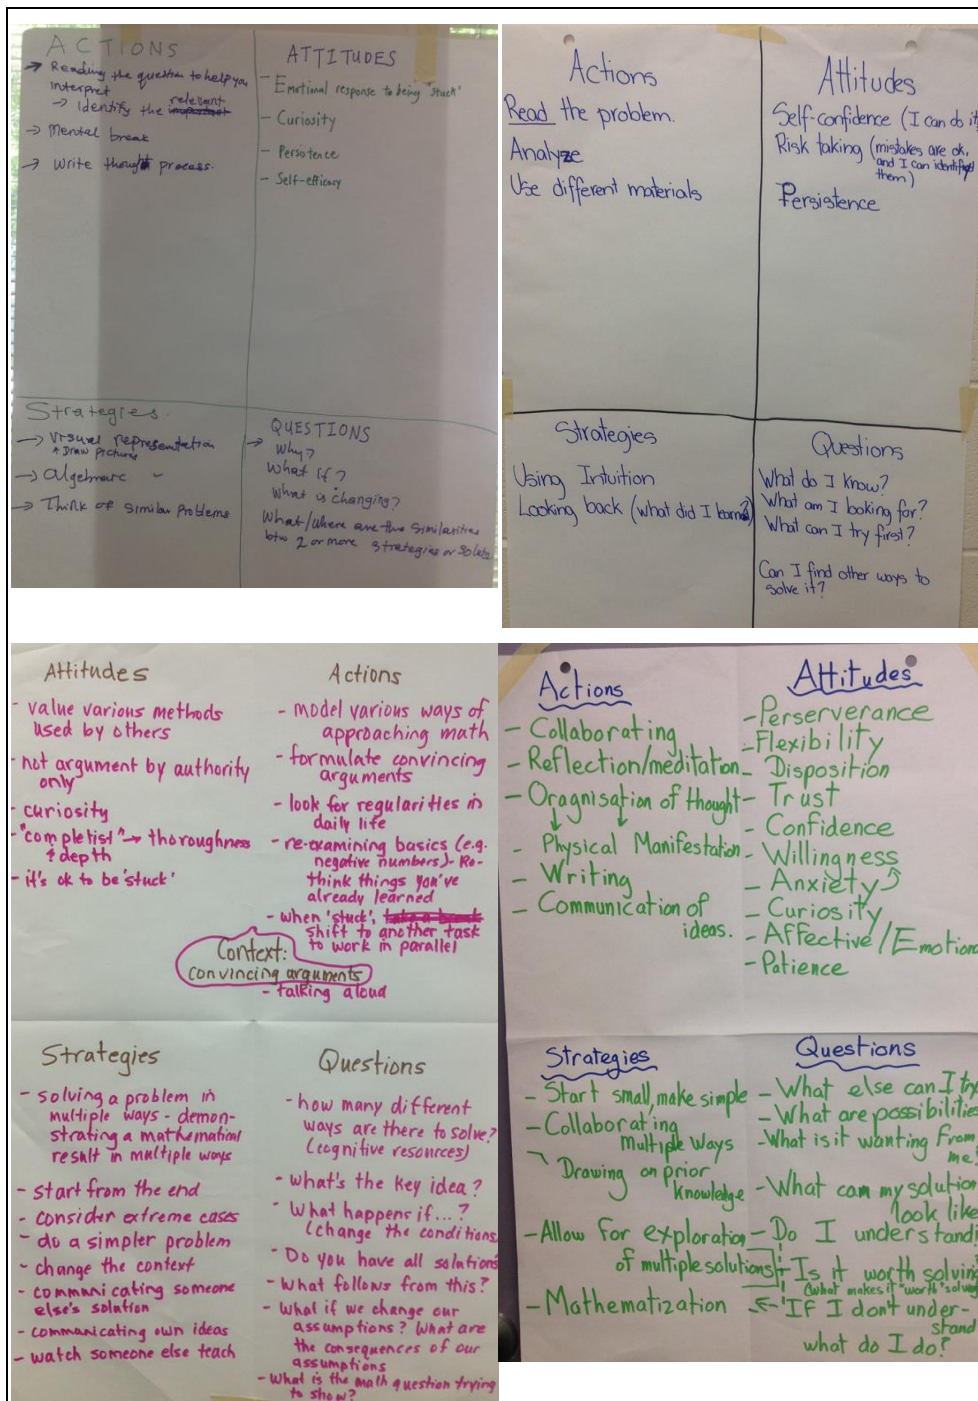 ACTIONS
→ Reading the question to help you
interpret
→ Identify the relevant
→ Mental break
→ Write thought process.
ATTITUDES
- Emotional response to being 'stuck'
- Curiosity
- Persistence
- Self-efficacy
Strategies.
→ Visual representation
* Draw pictures
→ algebraic
→ Think of similar problems
QUESTIONS
→ Why?
What If?
What is changing?
What/where are the similarities
btw 2 or more strategies or
Actions
Read the problem.
Analyze
Use different materials
Attitudes
Self-confidence (I can do it
Risk taking (mistakes are ok,
and I can identify
them)
Persistence
Strategies
Using Intuition
Looking back (what did I learn?)
Questions
What do I know?
What am I looking for?
What can I try first?
Can I find other ways to
solve it?
Attitudes
- value various methods
used by others
- not argument by authority
only
- curiosity
- "completist" → thoroughness
& depth
- it's ok to be 'stuck'
Actions
- model various ways of
approaching math
- formulate convincing
arguments
- look for regularities in
daily life
- re-examining basics (e.g.
negative numbers)- Re-
think things you've
already learned
- when 'stuck', take a break
shift to another task
to work in parallel
- talking aloud
Context:
convincing arguments
Strategies
- solving a problem in
multiple ways - demon-
strating a mathematical
result in multiple ways
- start from the end
- consider extreme cases
- do a simpler problem
- change the context
- communicating someone
else's solution
- communicating own ideas
- watch someone else teach
Questions
- how many different
ways are there to solve?
(cognitive resources)
- what's the key idea?
- What happens if...?
(change the conditions
- Do you have all solutions
- What follows from this?
- What if we change our
assumptions? What are
the consequences of our
assumptions
- What is the math question trying
to show?
Actions
- Collaborating
- Reflection/meditation
- Oragnisation of thought
- Physical Manifestation
- Writing
- Communication of
ideas.
Attitudes
- Perserverance
- Flexibility
- Disposition
- Trust
- Confidence
- Willingness
- Anxiety
- Curiosity
- Affective/Emotiona
- Patience
Strategies
- Start small, make simple
- Collaborating
Multiple Ways
Drawing on prior
knowledge
- Allow for exploration
of multiple solutions
- Mathematization
Questions
- What else can I try
- What are possibilities
- What is it wanting from
me?
- What can my solution
look like
- Do I understand?
- Is it worth solving
(what makes it "worth" solving
If I don't under-
stand
what do I do?